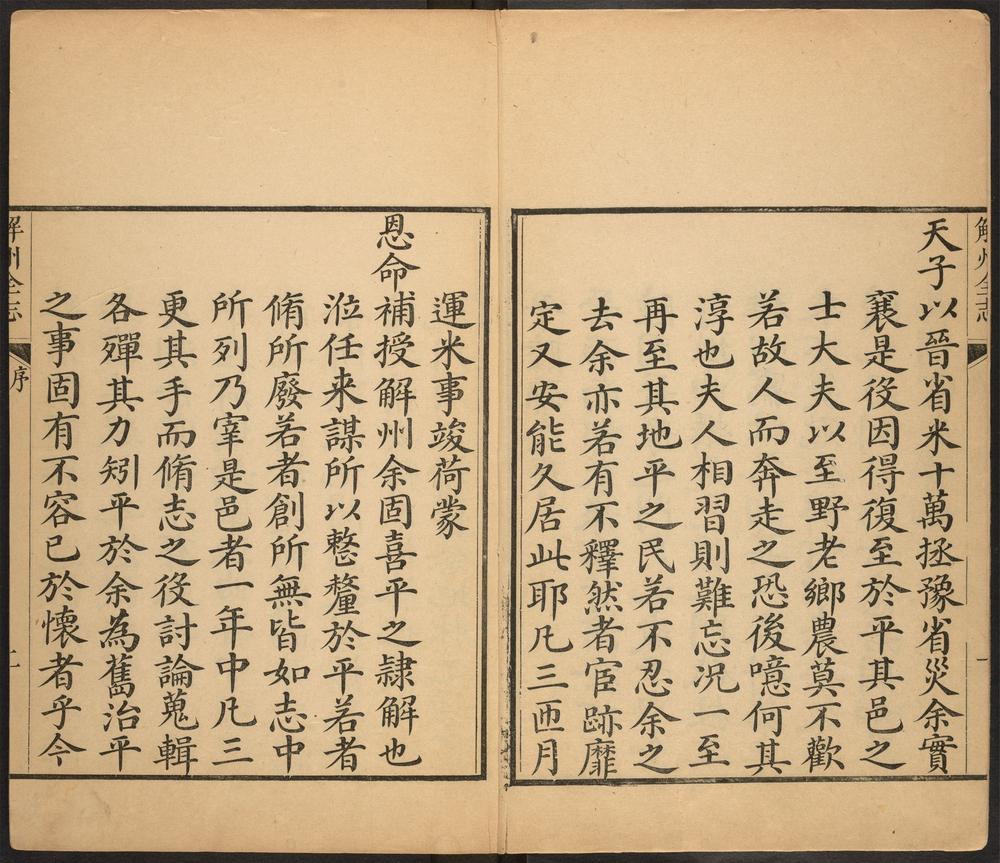 解州全志
一
天子以晉省米十萬拯豫省災余實
襄是役因得復至於平其邑之
士大夫以至野老鄉農莫不歡
若故人而奔走之恐後噫何其
淳也夫人相習則難忘况一至
再至其地平之民若不忍余之
去余亦若有不釋然者宦跡靡
定又安能久居此耶凡三匝月
運米事竣荷蒙
恩命補授解州余固喜平之隸解也
涖任来謀所以整釐於平若者
脩所廢若者創所無皆如志中
所列乃宰是邑者一年中凡三
更其手而脩志之役討論蒐輯
各殫其力矧平於余為舊治平
之事固有不容已於懷者乎今
解州全志
序
二